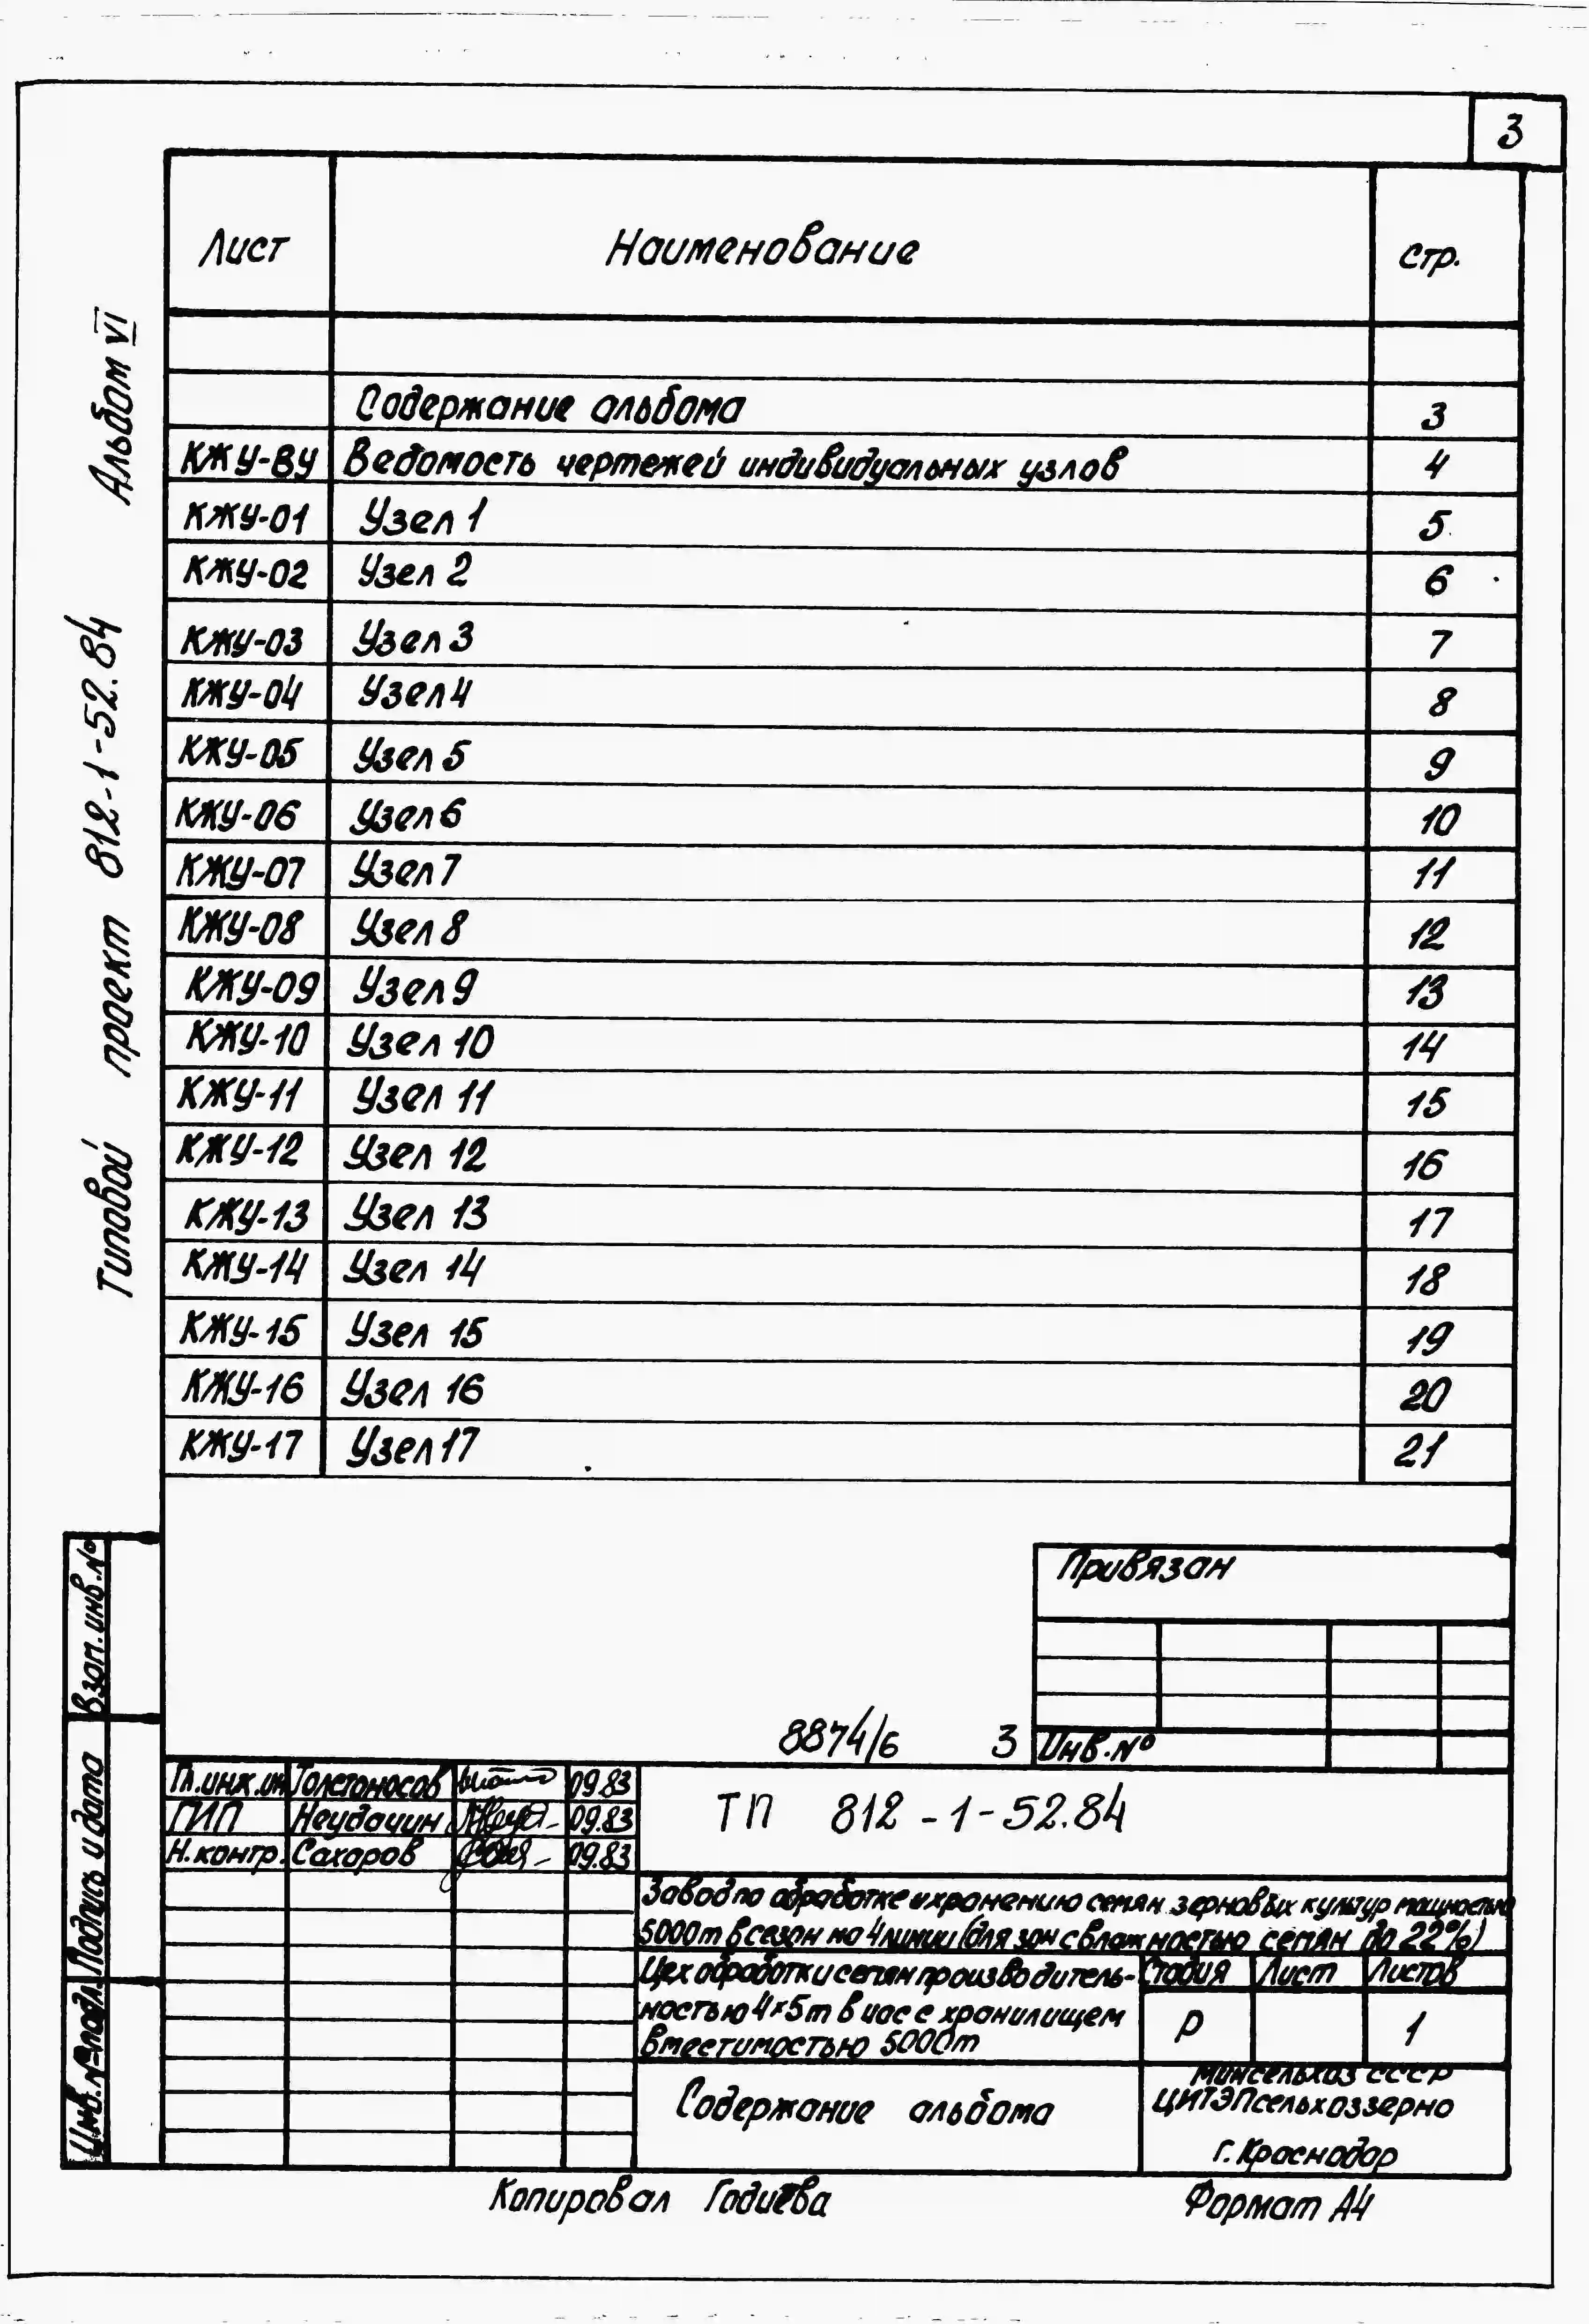 3
Лист Наименование Стр.
Содержание альбома 3
КЖУ-ВУ Ведомость чертежей индивидуальных узлов 4
КЖУ-01 Узел 1 5
КЖУ-02 Узел 2 6
КЖУ-03 Узел 3 7
КЖУ-04 Узел 4 8
КЖУ-05 Узел 5 9
КЖУ-06 Узел 6 10
КЖУ-07 Узел 7 11
КЖУ-08 Узел 8 12
КЖУ-09 Узел 9 13
КЖУ-10 Узел 10 14
КЖУ-11 Узел 11 15
КЖУ-12 Узел 12 16
КЖУ-13 Узел 13 17
КЖУ-14 Узел 14 18
КЖУ-15 Узел 15 19
КЖУ-16 Узел 16 20
КЖУ-17 Узел 17 21
Типовой проект 812-1-52.84 Альбом VI
Взам.инв.№
Подпись и дата
Инв.№подл.
Привязан
8874/6 3
Инв.№
Гл.инж.ин. Толстоносов 09.83
ГИП Неудачин 09.83
Н.контр. Сахаров 09.83
ТП 812-1-52.84
Завод по обработке и хранению семян зерновых культур мощностью
5000т в сезон на 4 линии (для зон с влажностью семян до 22%)
Цех обработки семян производитель-
ностью 4×5т в час с хранилищем
вместимостью 5000т
Стадия Лист Листов
Р 1
Содержание альбома
Минсельхоз СССР
ЦИТЭПсельхоззерно
г. Краснодар
Копировал Годиева
Формат А4